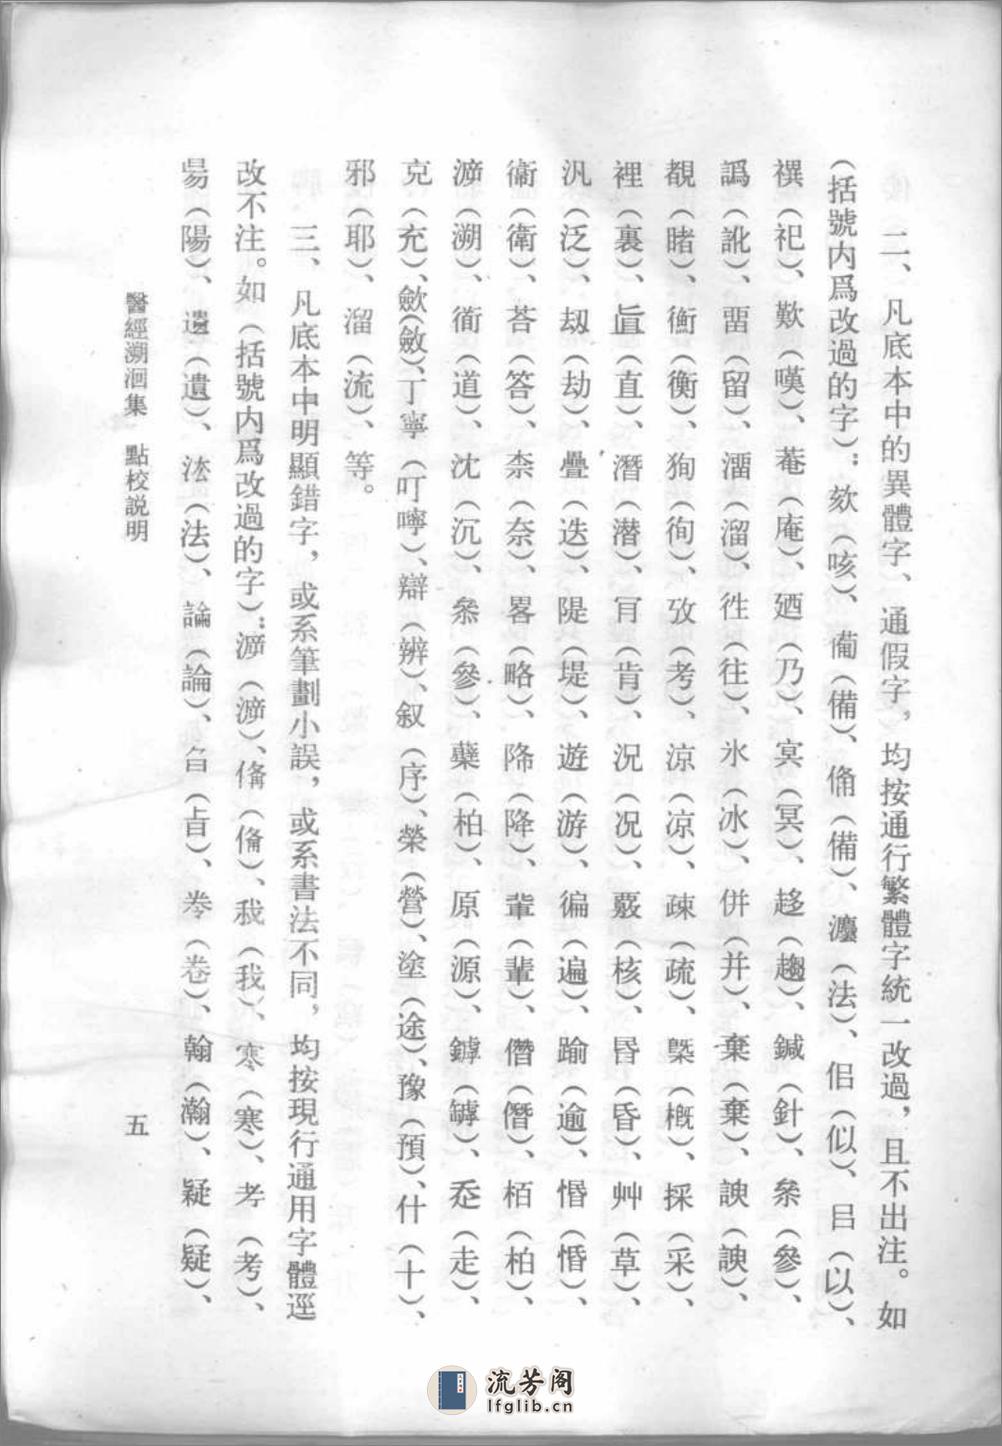 二、凡底本中的異體字、通假字，均按通行繁體字統一改過，且不出注。如
（括號内爲改過的字）：欬（咳）、僃（備）、俻（備）、灋（法）、佀（似）、㠯（以）、
禩（祀）、歎（嘆）、菴（庵）、廼（乃）、㝠（冥）、趍（趨）、鍼（針）、叅（參）、
譌（訛）、畱（留）、澑（溜）、徃（往）、氷（冰）、併（并）、棄（棄）、諛（諛）、
覩（睹）、衡（衡）、狥（徇）、攷（考）、涼（凉）、疎（疏）、槩（概）、採（采）、
裡（裏）、直（直）、潛（潜）、肎（肯）、況（况）、覈（核）、昬（昏）、艸（草）、
汎（泛）、刼（劫）、疊（迭）、隄（堤）、遊（游）、徧（遍）、踰（逾）、惽（惛）、
衞（衛）、荅（答）、柰（奈）、畧（略）、降（降）、軰（輩）、僭（僭）、栢（柏）、
泝（溯）、衟（道）、沈（沉）、叅（參）、蘗（柏）、原（源）、罅（罅）、赱（走）、
克（充）、歛（斂）、丁寧（叮嚀）、辯（辨）、叙（序）、榮（營）、塗（途）、豫（預）、什（十）、
邪（耶）、溜（流）、等。
三、凡底本中明顯錯字，或系筆劃小誤，或系書法不同，均按現行通用字體逕
改不注。如（括號内爲改過的字）：（我）、寒（寒）、考（考）、
昜（陽）、遺（遺）、法（法）、論（論）、（旨）、（卷）、翰（瀚）、疑（疑）、
醫經溯洄集　點校説明
五
流芳阁
lfglib.cn